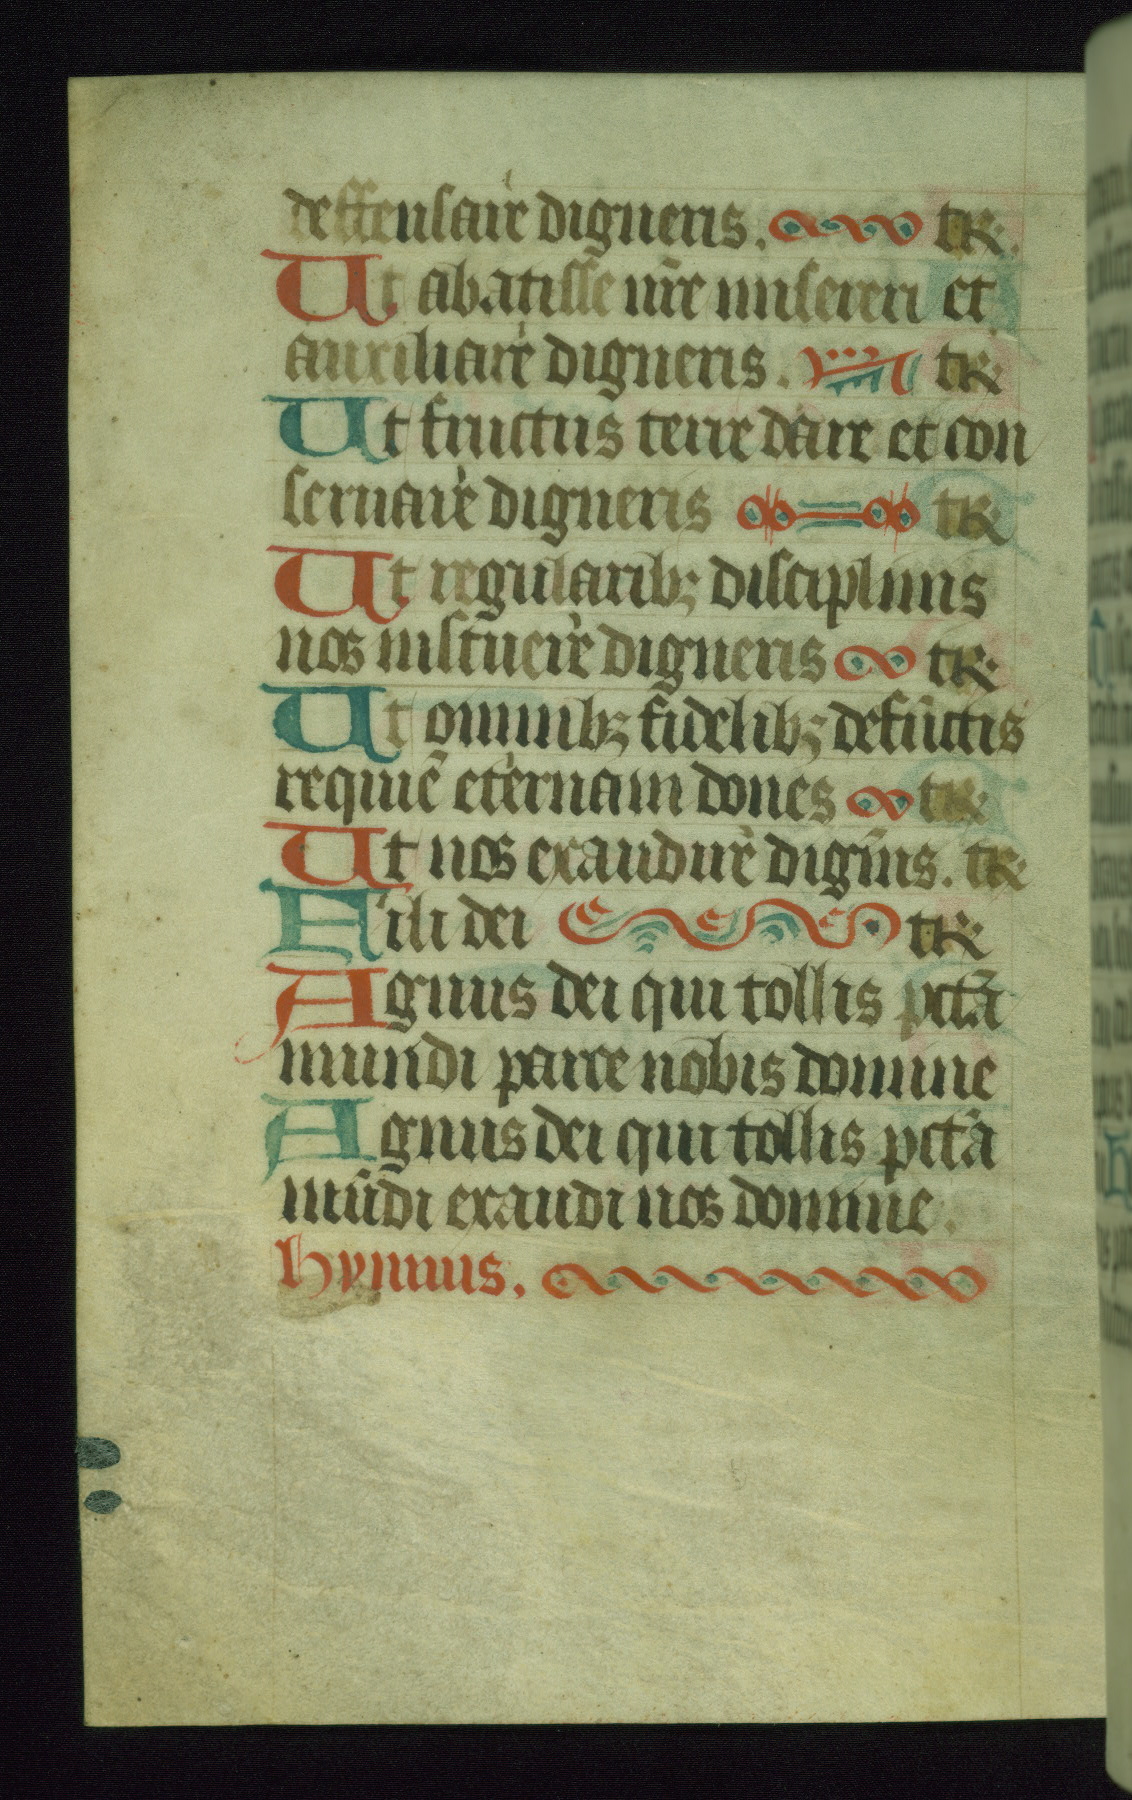 deffensare digneris. tR.
Ut abatisse nr̄e misereri et
auxiliare digneris. tR
Ut fructus terre dare et con
seruare digneris tR
Ut regularibꝫ disciplinis
nos instruere digneris tR.
Ut omnibꝫ fidelibꝫ defūctis
requiē eternam dones tR
Ut nos exaudire dign̄is. tR.
Fili dei tR
Agnus dei qui tollis pctā
mundi parce nobis domine
Agnus dei qui tollis pctā
mūdi exaudi nos domine.
hymnus.